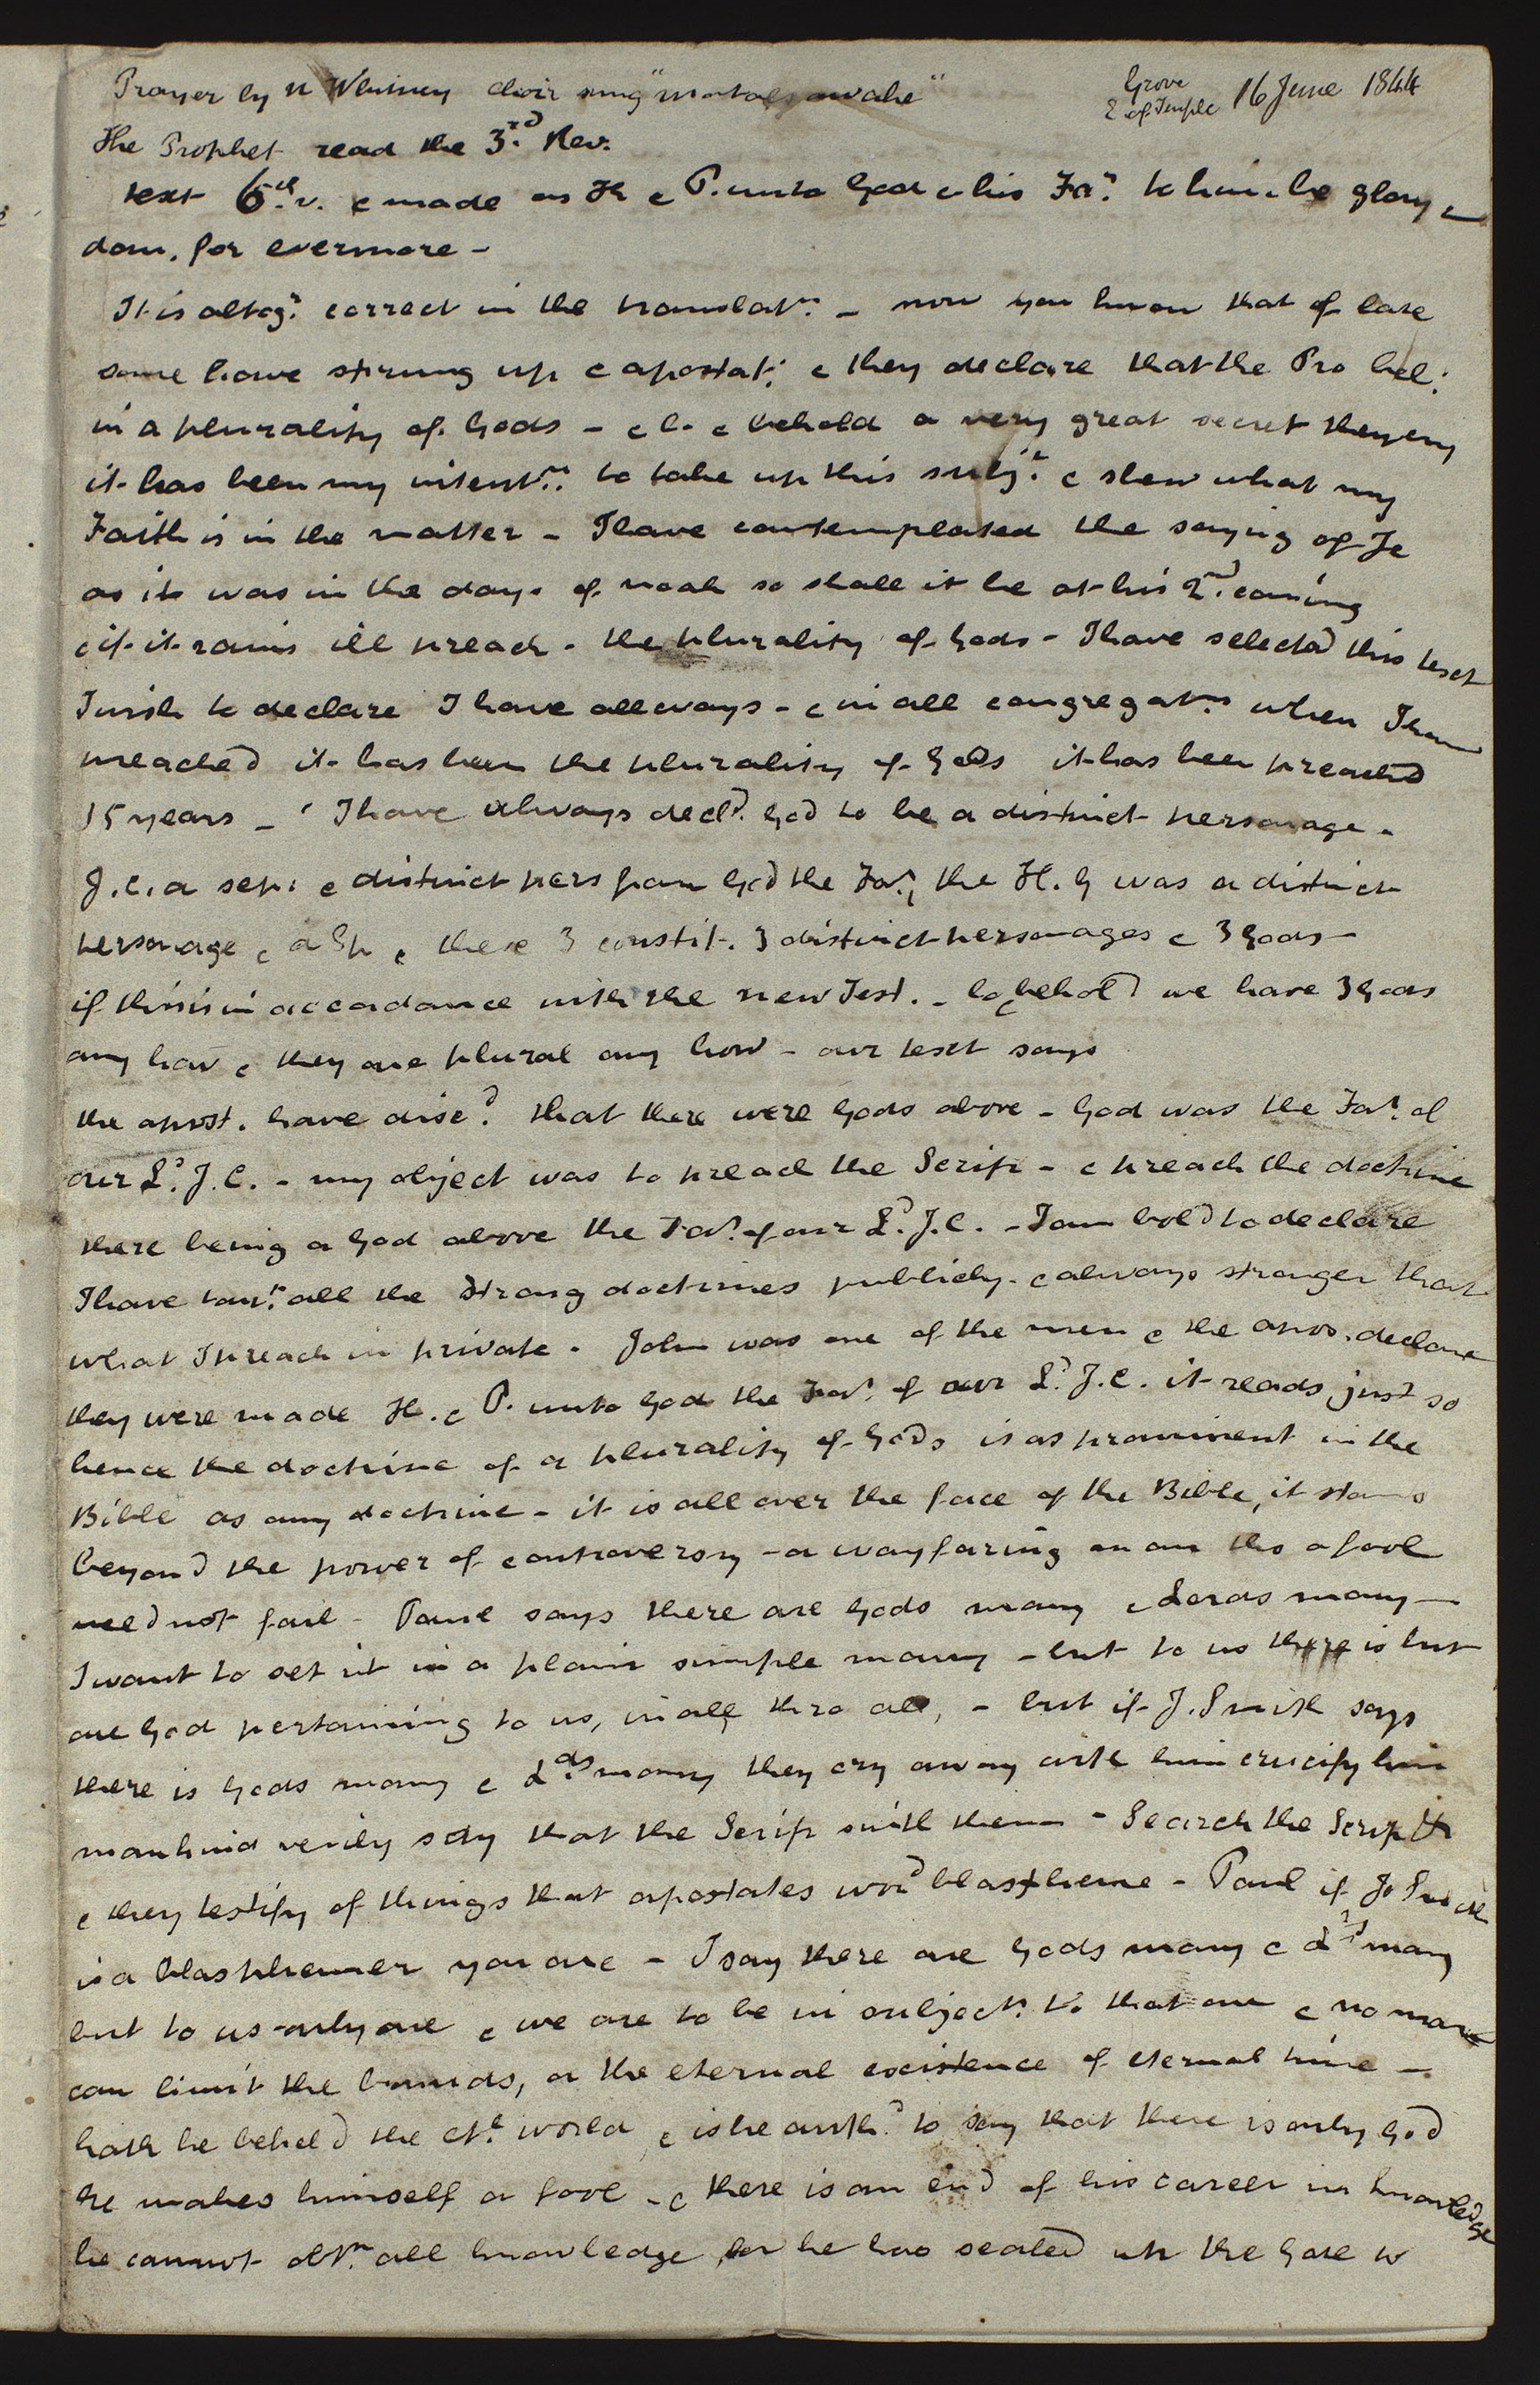 Prayer by N Whitney choir sung "mortals awake"
Grove
E of Temple 16 June 1844
The Prophet read the 3.rd Rev.
text 6.th v. & made us K & P. unto God & his Far. to him be glory &
dom. for evermore -
It is altogr. correct in the translatn. - now you know that of late
some have strung up & apostat: & they declare that the Pro bel:
in a plurality of Gods - & l. & behold a very great secret they cry
it has been my intentn. to take up this subjt. & shew what my
Faith is in the matter - I have contemplated the saying of Je
as it was in the days of noah so shall it be at his 2nd. coming
& if it rains ill preach - the plurality of Gods - I have selected this text
I wish to declare I have allways - & in all congregatns. when I have
preached it has been the plurality of Gods it has been preached
15 years - I have always decld. God to be a distinct personage -
J. C. a sep: & distinct pers from God the Far. the H. G was a distinct
personage & a Sp & these 3 constit. 3 distinct personages & 3 Gods -
if this is in accordance with the new Test. - lo & behold we have 3 Gods
any how & they are plural any how - our text says
the apost. have discd. that there were Gods above - God was the Far. of
our Ld. J. C. - my object was to preach the Scrip - & preach the doctrine
there being a God above the Far. of our Ld. J. C. - I am bold to declare
I have taut. all the strong doctrines publicly - & always stronger than
what I preach in private - John was one of the men & the apos. declare
they were made K. & P. unto God the Far. of our Ld. J. C. it reads just so
hence the doctrine of a plurality of Gods is as prominent in the
Bible as any doctrine - it is all over the face of the Bible, it stands
beyond the power of controversy - a wayfaring man tho a fool
need not fail - Paul says there are Gods many & Lords many -
I want to set it in a plain simple manr - but to us there is but
one God pertaining to us, in all thro all, - but if J. Smith says
there is Gods many & Lds. many they cry away with him crucify him
mankind verily say that the Scrip with them - Search the Script
& they testify of things that apostates wod blaspheme - Paul if Jo Smith
is a blasphemer you are - I say there are Gods many & Lds many
but to us only one & we are to be in subject. to that one & no man
can limit the bounds, or the eternal existence of eternal time -
hath he beheld the etl. world & is he authd. to say that there is only God
he makes himself a fool - & there is an end of his career in knowledge
he cannot obtn. all knowledge for he has sealed up the gate to